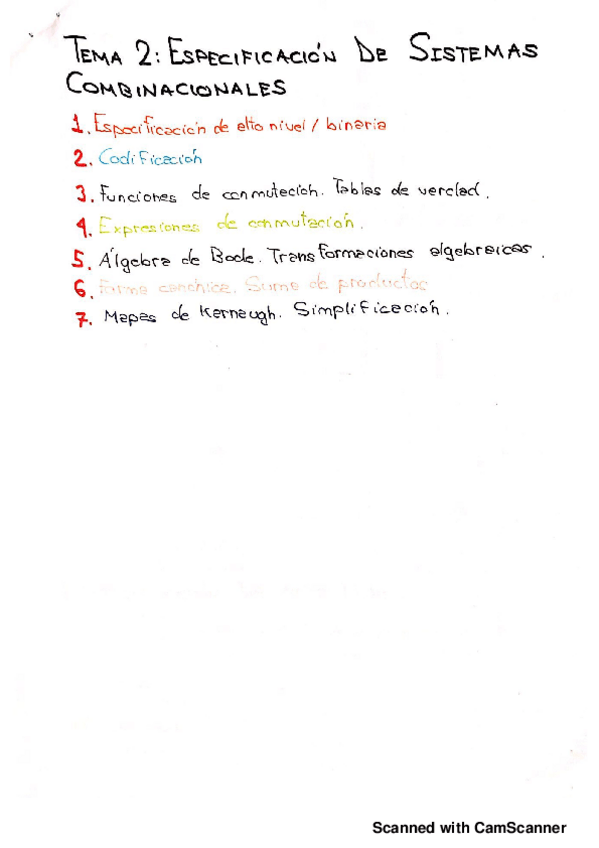 TEMA 2: ESPECIFICACIÓN DE SISTEMAS
COMBINACIONALES
1. Especificación de alto nivel / binaria
2. Codificación
3. Funciones de conmutación. Tablas de verdad.
4. Expresiones de conmutación.
5. Álgebra de Boole. Transformaciones algebraicas.
6. Forma canónica. Suma de productos
7. Mapas de Karnaugh. Simplificación.
Scanned with CamScanner